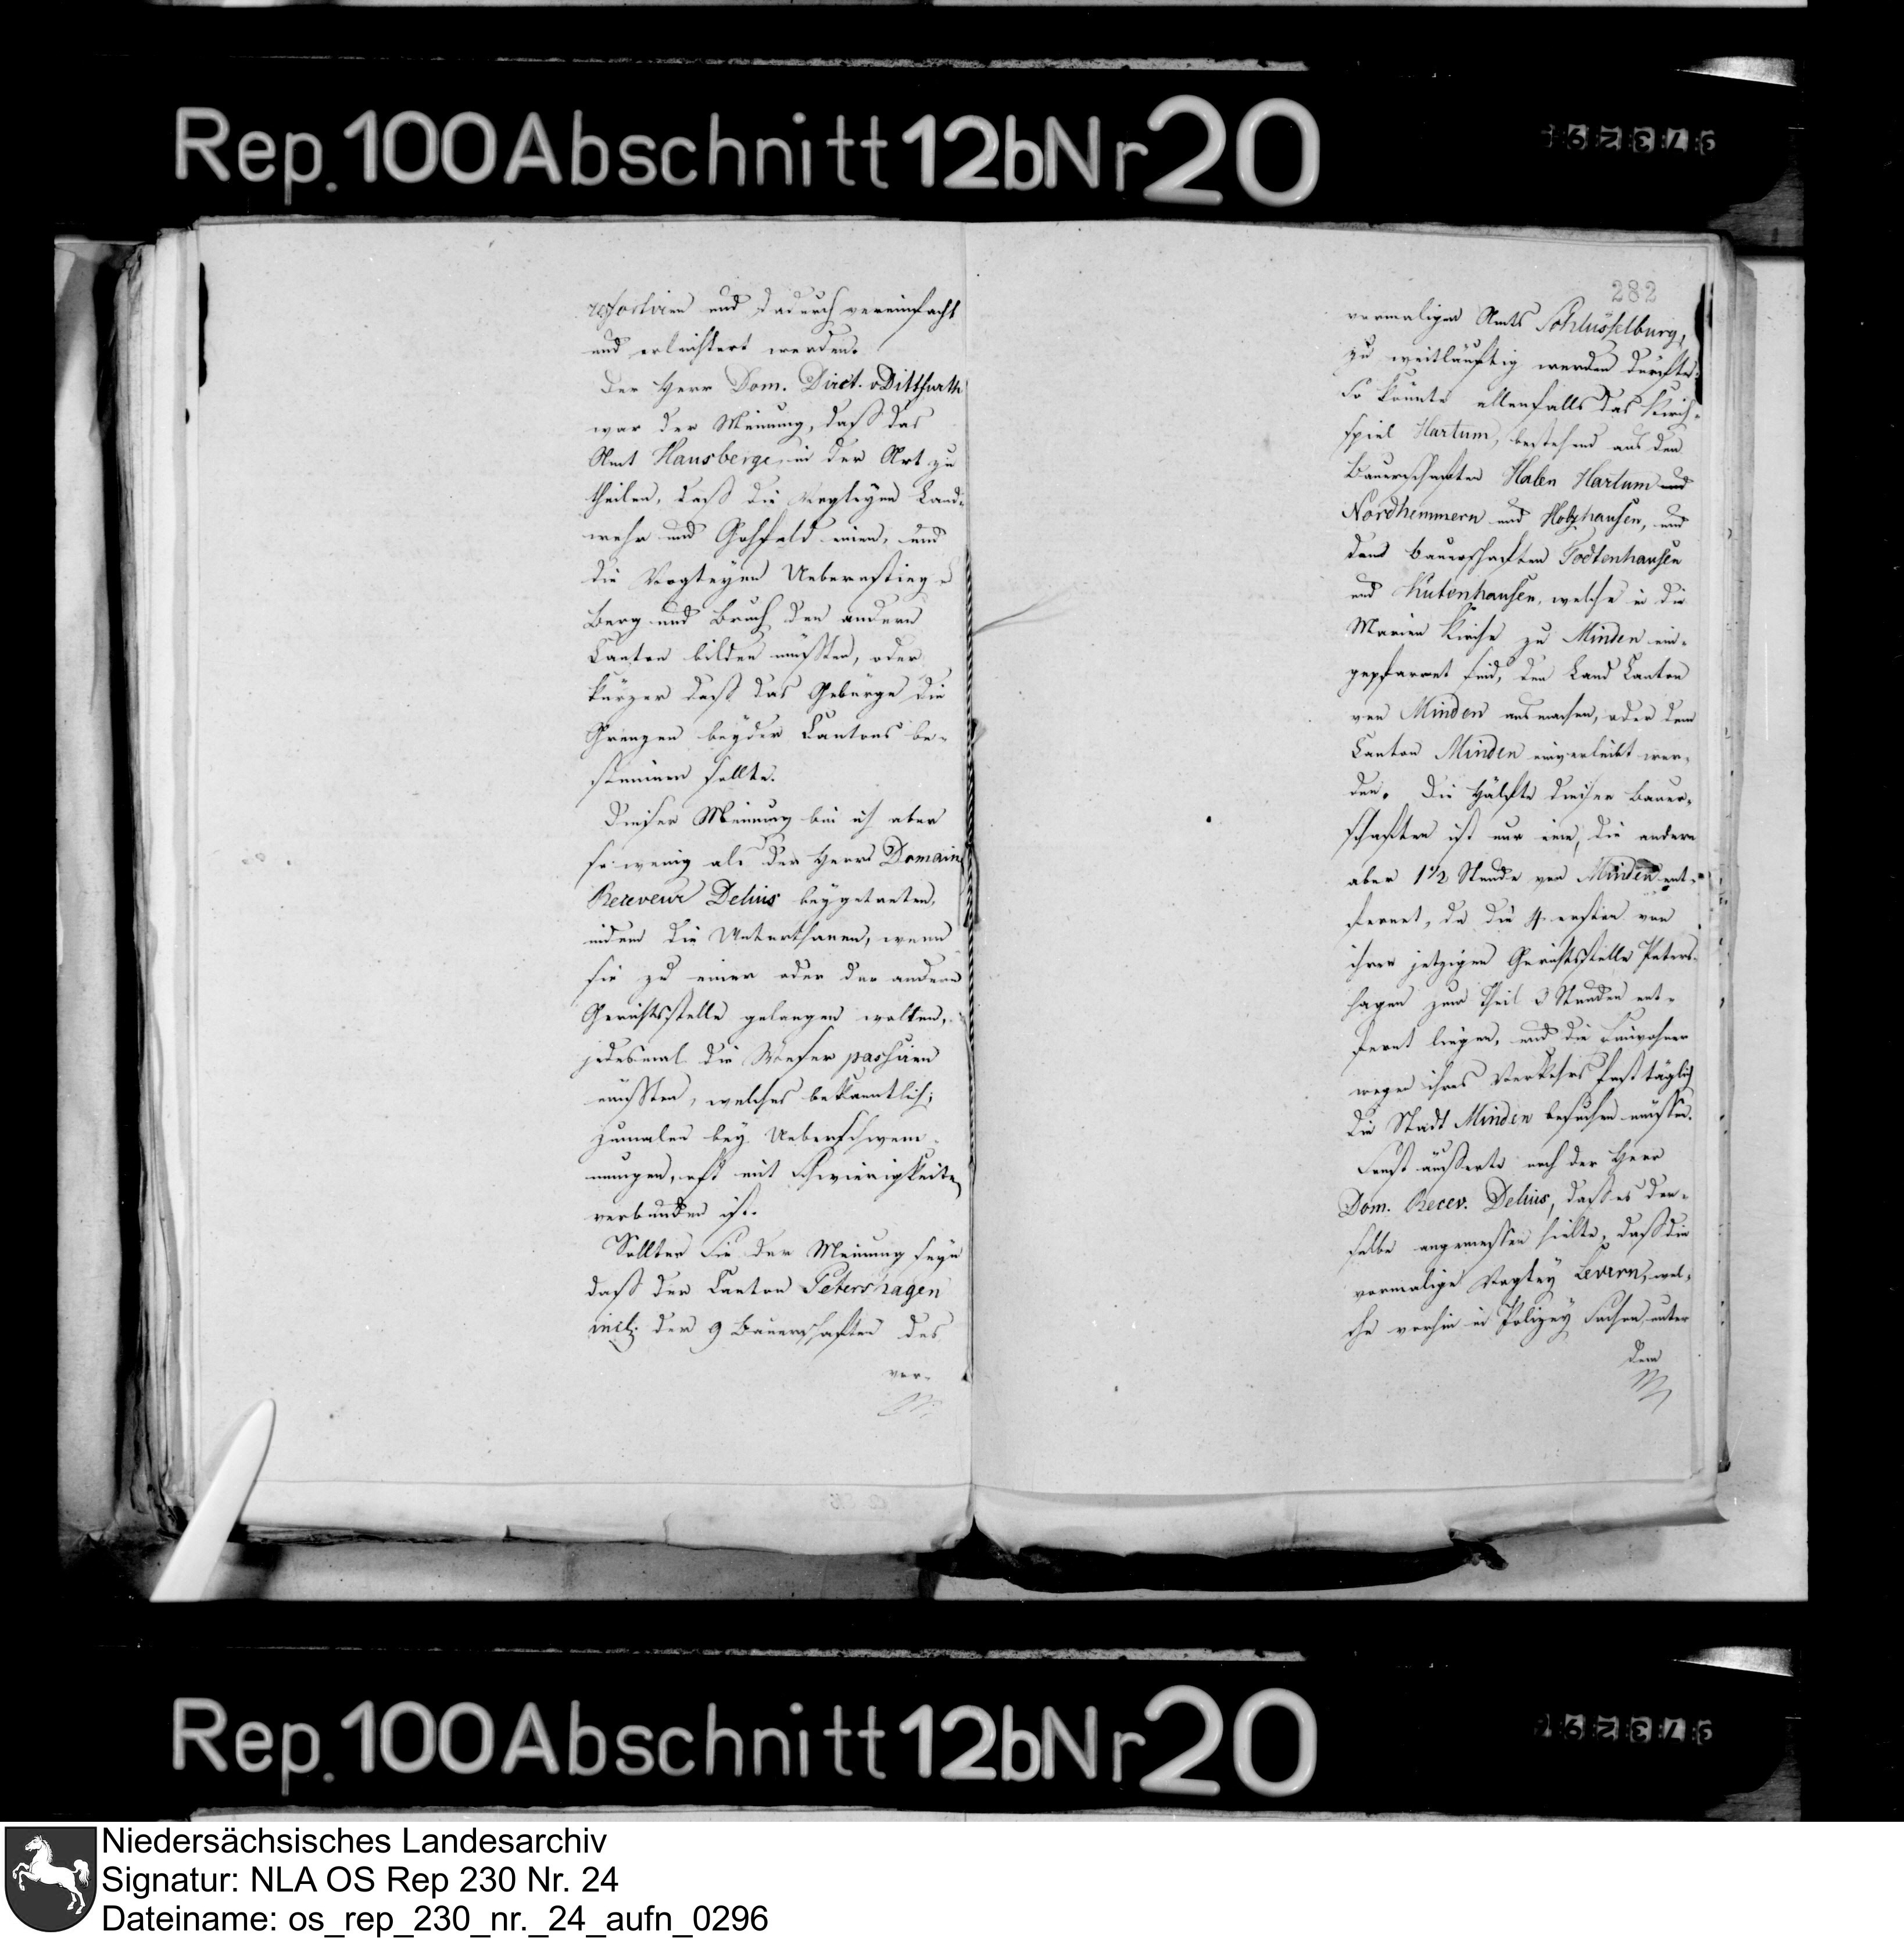 Rep. 100 Abschnitt 12b Nr 20
und dadurch vereinfacht
und erleichtert werden.
Der Herr Dom. Direct. v Ditthurth
war der Meinung, daß das
Amt Hausberge in der Art zu
theilen, daß die Vogteyen Land-
wehr und Gohfeld einen, und
die Vogteyen Uebernstieg
Berg und Bruch den andern
Canton bilden müßten, oder
kürzer daß das Gebürge die
Grenzen beyder Cantons be-
stimmen sollte.
Dieser Meinung bin ich aber
so wenig als der Herr Domain
Receveur Delius beygetreten,
indem die Unterthanen, wenn
sie zu einer oder der andern
Gerichtsstelle gelangen wollten,
jedesmal die Weser passiren
müßten, welches bekanntlich,
zumalen bey Ueberschwem-
mungen, oft mit Schwierigkeiten
verbunden ist.
Sollten Sie der Meinung seyn
daß der Canton Petershagen
incl. der 9 Bauerschaften des
ver-
282
vormaligen Amts Schlüsselburg,
zu weitläuftig werden dürfte,
so könnte allenfalls das Kirch-
spiel Hartum, bestehend aus den
Bauerschaften Halen Hartum und
Nordhemmern und Holzhausen, und
den Bauerschaften Todtenhausen
und Kutenhausen, welche in die
Marien Kirche zu Minden ein-
gepfarret sind, den Land Canton
von Minden ausmachen, oder dem
Canton Minden einverleibt wer-
den. Die Hälfte dieser Bauer-
schaften ist nur eine, die andere
aber 1 1/2 Stunde von Minden ent-
fernet, da die 4 ersten von
ihrer jetzigen Gerichtsstelle Peters-
hagen zum Theil 3 Stunden ent-
fernt liegen, und die Einwohner
wegen ihres Verkehrs fast täglich
die Stadt Minden besuchen müssen.
Sonst äußerte noch der Herr
Dom. Recev. Delius, daß es der-
selbe angemessen hielte, daß die
vormalige Vogtey Levern, wel-
che vorhin in Polizey Sachen unter
dem
Rep. 100 Abschnitt 12b Nr 20
Niedersächsisches Landesarchiv
Signatur: NLA OS Rep 230 Nr. 24
Dateiname: os_rep_230_nr._24_aufn_0296